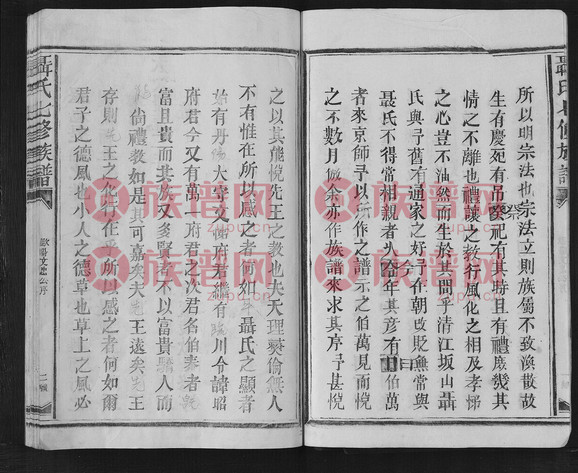 聶氏七修族譜
所以明宗法也宗法立則族屬不致渙散故
生有慶死有弔祭祀有其時且有禮庶幾其
情之不離也禮讓之教行風化之相及孝悌
之心豈不油然而生於其間乎清江坂山聶
氏與予舊有通家之好予在朝改貶無常與
聶氏不得常相親者
年其彥有 伯萬
者來京師予以所作之譜示之伯萬見而悅
之不數月做余亦作族譜來求其序予甚悅
之以其能悅先王之教也夫天理彝倫無人
不有惟在所以感之者何如 聶氏之顯者
始有丹 大寄文 府君繼有 川令諱昭
府君今又有萬一府君之次君名伯泰者
富且貴而其族人又多賢者不以富貴驕人而
尚禮教如是其可嘉矣夫 王遠矣
存則 王之化有在乎所以感之者何如爾
君子之德風也小人之德草也草上之風必
聶氏七修族譜
歐陽文忠公序
二